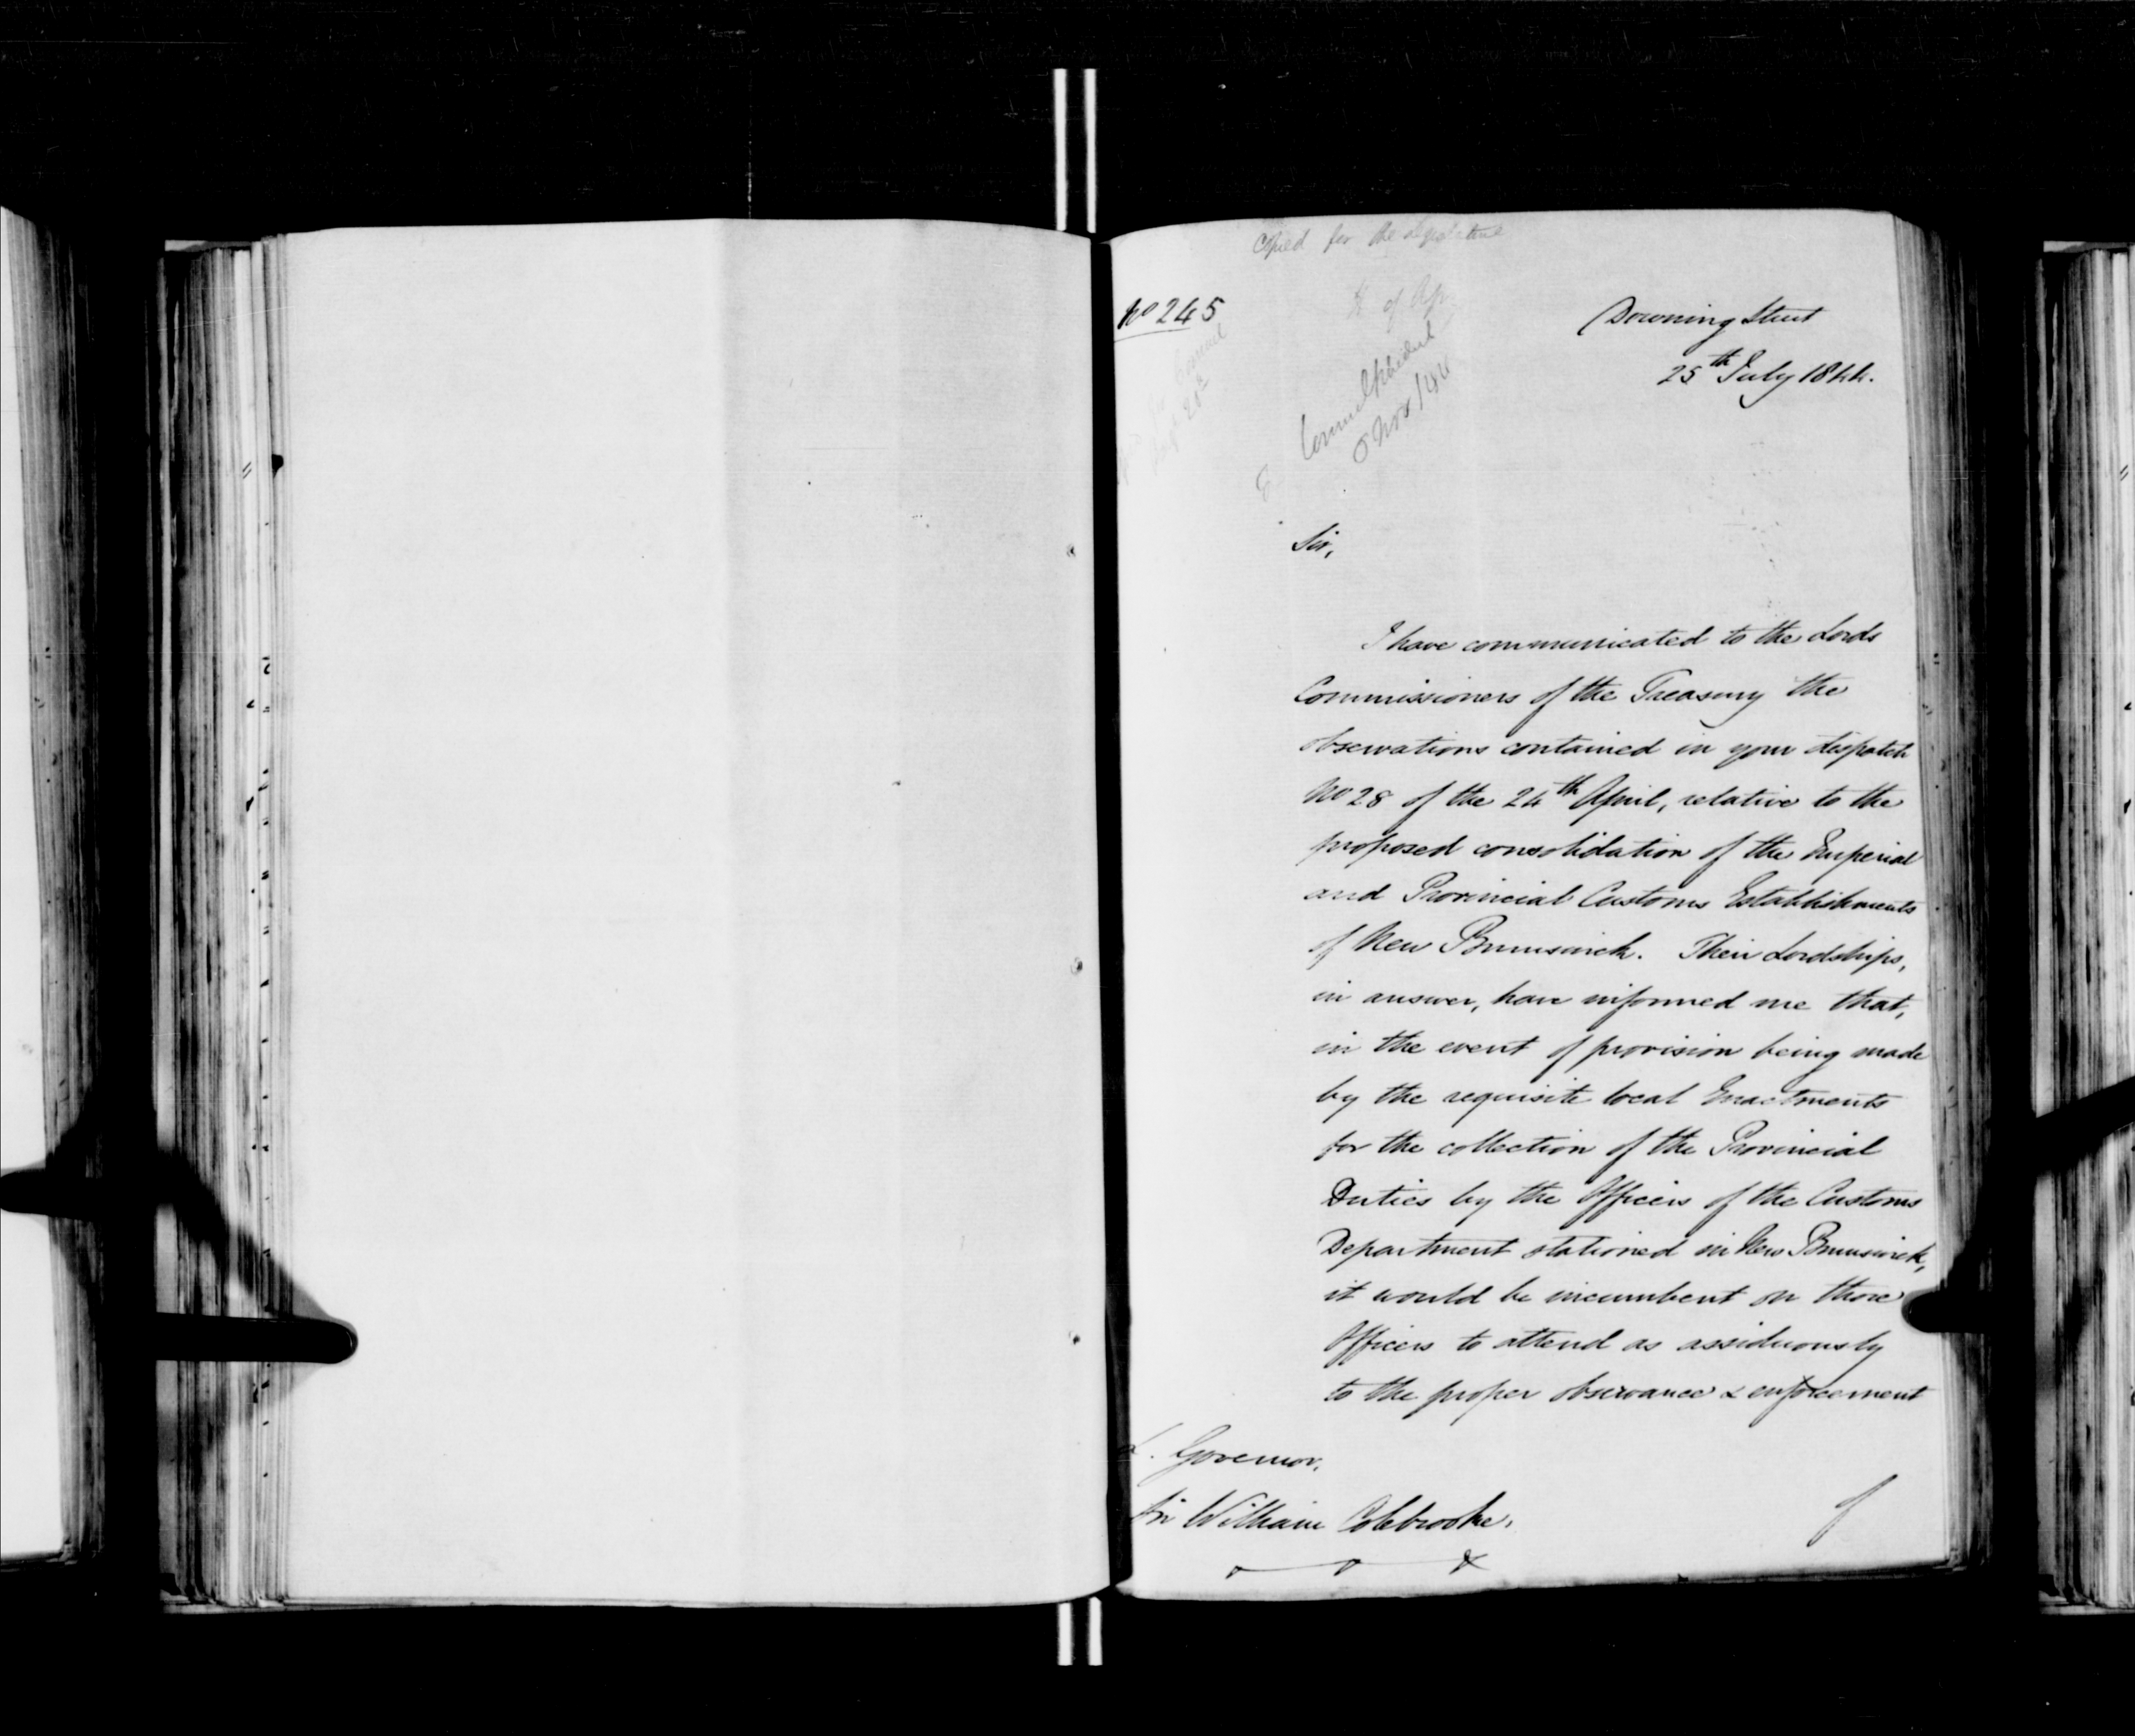 Copied for the Legislature
No 245
Downing Street
25th July 1844.
Sir,
I have communicated to the Lords
Commissioners of the Treasury the
observations contained in your dispatch
No 28 of the 24th April, relative to the
proposed consolidation of the Imperial
and Provincial Customs Establishments
of New Brunswick. Their Lordships,
in answer, have informed me that,
in the event of provision being made
by the requisite local Enactments
for the collection of the Provincial
Duties by the Officers of the Customs
Department stationed in New Brunswick,
it would be incumbent on those
Officers to attend as assiduously
to the proper observance & enforcement
L. Governor,
Sir William Colebrooke,
of